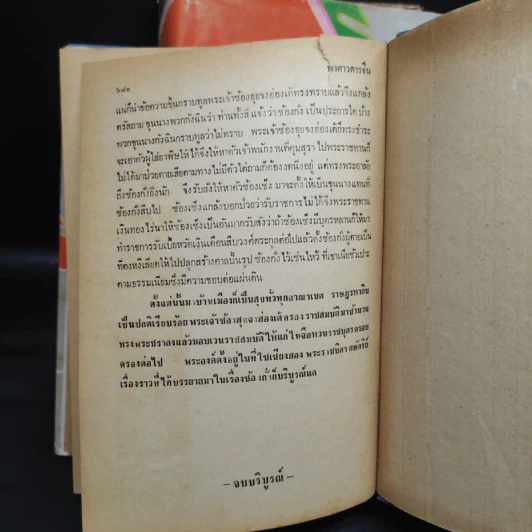 พงศาวดารจีน
๖๘๓
แนก็นำข้อความขึ้นกราบทูลพระเจ้าซ้องฮุยจงฮ่องเต้ทรงทราบแล้วจึงแกล้ง
ตรัสถาม ขุนนางพวกกังฉินว่า ท่านทั้งสี่ แจ้งว่า ซ้องกั๋ง เป็นประการใด บ้าง
พวกขุนนางกังฉินกราบทูลว่าไม่ทราบ พระเจ้าซ้องฮุยจงฮ่องเต้ก็ทรงชำระ
จะเอาตัวผู้ใส่ยาพิษให้ได้จึงให้หาตัวเจ้าพนักงานที่คุมสุรา ไปพระราชทานก็
ไม่ได้มาป่วยตายเสียตามทางไม่มีตัวไต่ถามก็ต้องงดนิ่งอยู่ แต่ทรงพระอาลัย
ถึงซ้องกั๋งยิ่งนัก จึงรับสั่งให้หาตัวซ้องเซ็ง มาจะตั้งให้เป็นขุนนางแทนที่
ซ้องกั๋งสืบไป ซ้องเซ็งแกล้งบอกป่วยว่ารับราชการไม่ได้จึงพระราชทาน
เงินทองไร่นาให้ซ้องเซ็งเป็นอันมากรับสั่งว่าถ้าซ้องเซ็งมีบุตรหลานก็ให้มา
ทำราชการรับเบี้ยหวัดเงินเดือนสืบวงศ์ตระกูลต่อไปแล้วตั้งซ้องกั๋งผู้ตายเป็น
ให้ไปปลูกสร้างศาลปั้นรูป ซ้องกั๋ง ไว้เซ่นไหว้ ที่เขาเนียซัวเปะ
ตามธรรมเนียมซึ่งมีความชอบต่อแผ่นดิน
ตั้งแต่นั้นมา บ้านเมืองก็เป็นสุขทั่วทุกอาณาเขต ราษฎรหากิน
เป็นปกติเรียบร้อย พระเจ้าซ้องฮุยจงฮ่องเต้ครองราชสมบัติมาช้านาน
ทรงพระชราลงแล้วมอบเวนราชสมบัติให้แก่
ครองต่อไป พระองค์ตั้งอยู่ในที่ไซเซียงฮอง พระราชบิดา กษัตริย์
เรื่องราวที่ได้บรรยายมาในเรื่องซ้อง กั๋งก็บริบูรณ์แล
– จบบริบูรณ์ –